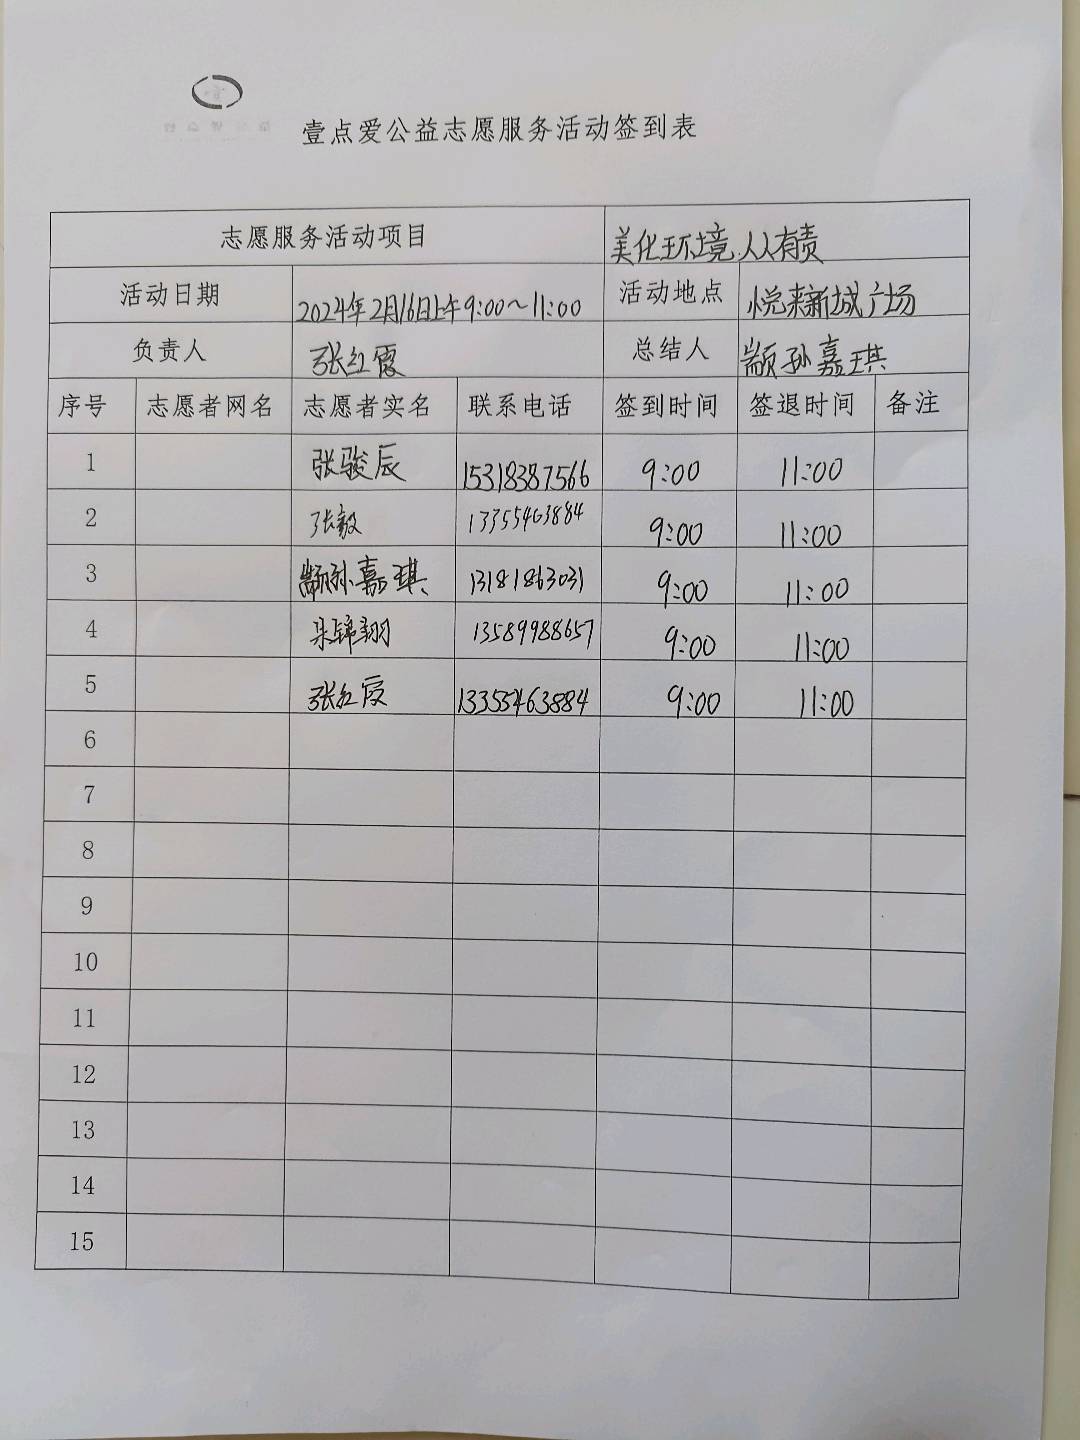 壹点爱公益志愿服务活动签到表
志愿服务活动项目 美化环境,人人有责
活动日期 2024年2月16日上午9:00~11:00 活动地点 悦来新城广场
负责人 张红霞 总结人 颛孙嘉琪
序号 志愿者网名 志愿者实名 联系电话 签到时间 签退时间 备注
1 张骏辰 15318387566 9:00 11:00
2 张毅 13355463884 9:00 11:00
3 颛孙嘉琪 13181863031 9:00 11:00
4 朱锦翔 13589988657 9:00 11:00
5 张红霞 13355463884 9:00 11:00
6
7
8
9
10
11
12
13
14
15